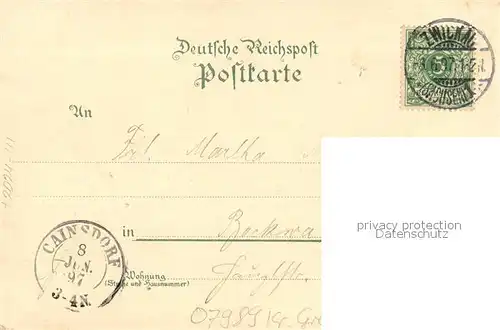 Deutsche Reichspost
Postkarte
ZWICKAU
(SACHSEN)
An
Frl. Martha
privacy protection
Datenschutz
CAINSDORF
8
JUN.
97
3-4N.
in Bockwa
Wohnung
(Straße und Hausnummer)
Hauptstr.
07989 Kr. Gre